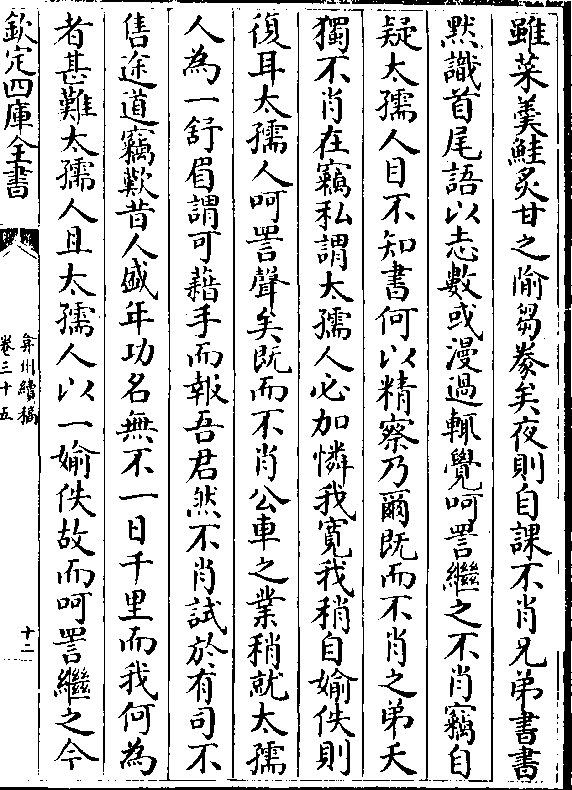 雖菜羹鮭炙甘之隃芻豢矣夜則自課不肖兄弟書書
默識首尾語以志數或漫過輒覺呵詈繼之不肖竊自
疑太孺人目不知書何以精察乃爾既而不肖之弟夭
獨不肖在竊私謂太孺人必加憐我寛我稍自媮佚則
復耳太孺人呵詈聲矣既而不肖公車之業稍就太孺
人為一舒眉謂可藉手而報吾君然不肖試於有司不
售途道竊歎昔人盛年功名無不一日千里而我何為
者甚難太孺人且太孺人以一媮佚故而呵詈繼之今
欽定四庫全書
弇州續稿
卷三十五
十二